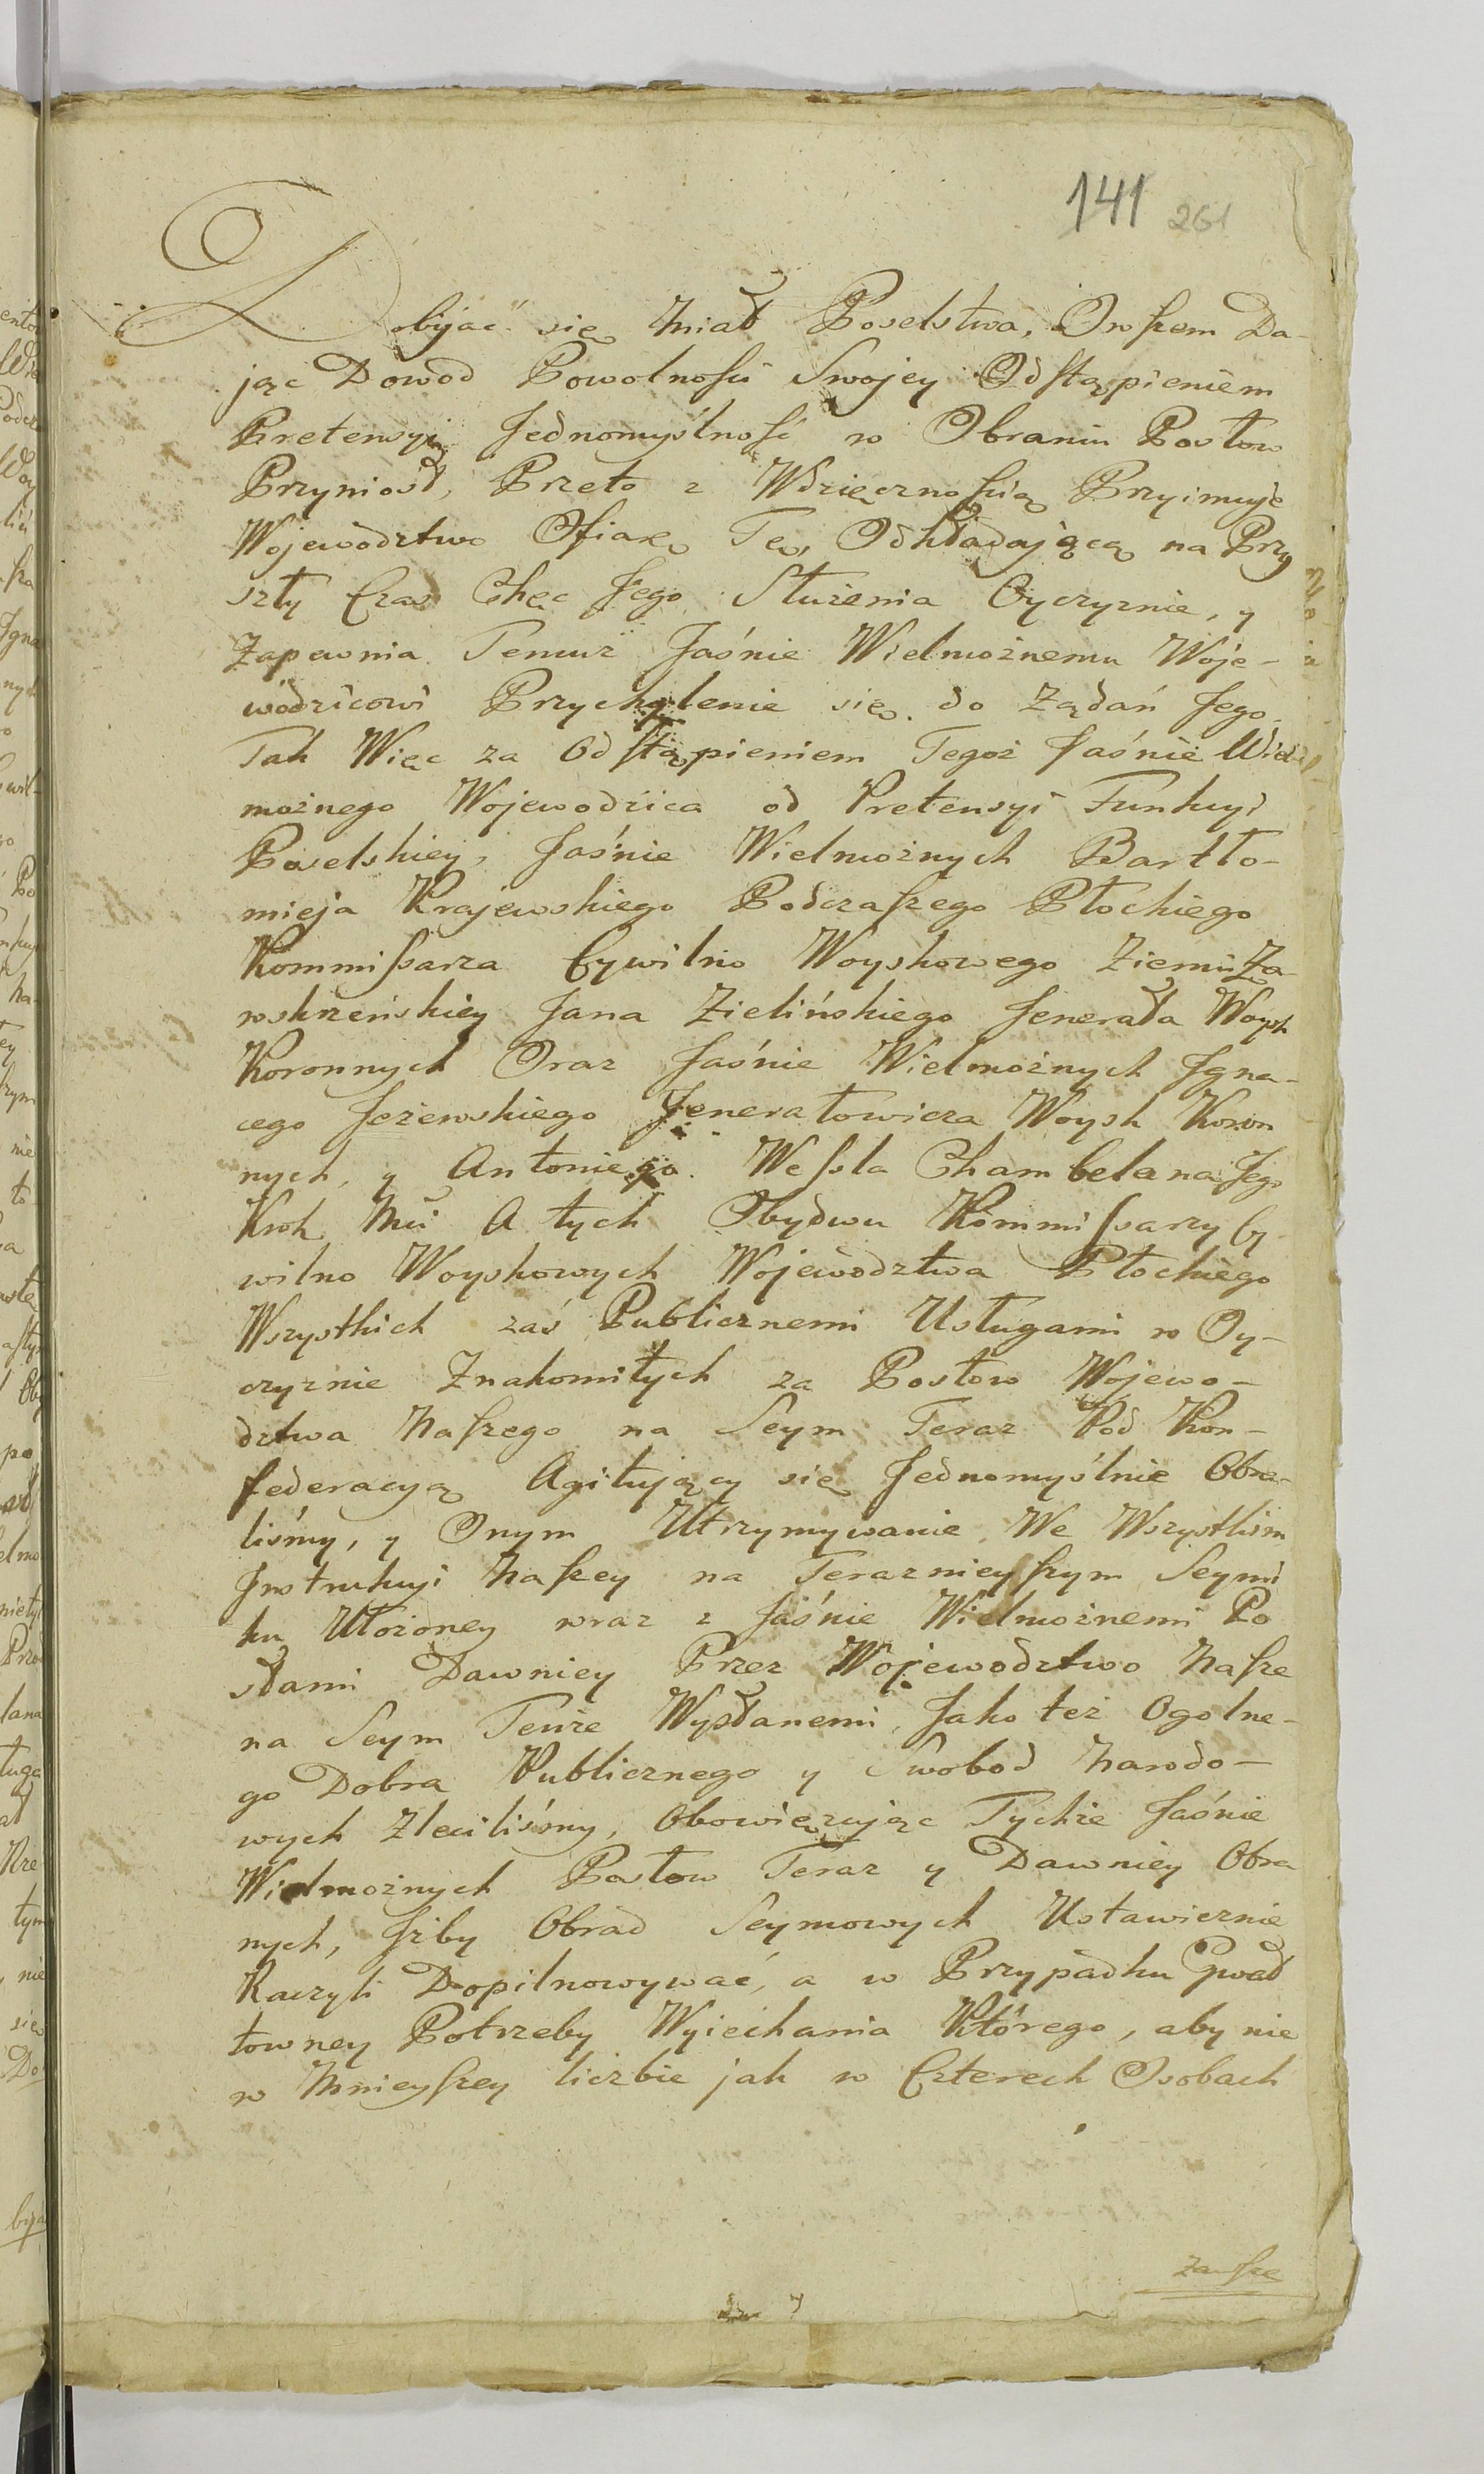 141 261
Dobijać się miał Poselstwa, Owszem Da-
jąc Dowod Powolności Swojey Odstąpieniem
Pretensyi, Jednomyślność w Obraniu Posłow
Przyniosł, Przeto z Wdzięcznością Przyimuje
Wojewodztwo Ofiarę Tę, Odkładającą na Przy
szły Czas Chęc Jego Służenia Oyczyznie, y
Zapewnia Temuż Jaśnie Wielmożnemu Woje-
wodzicowi Przychylenie się do Żądań Jego.
Tak Więc za Odstąpieniem Tegoż Jaśnie Wiel
możnego Wojewodzica od Pretensyi Funkcyi
Poselskiey, Jaśnie Wielmożnych Bartło-
mieja Krajewskiego Podczaszego Płockiego
Kommissarza Cywilno Woyskowego Ziemi Za
wskrzeńskiey Jana Zielińskiego Jenerała Woysk
Koronnych Oraz Jaśnie Wielmożnych Jgna-
cego Jeżewskiego Jenerałowicza Woysk Koron
nych, y Antoniego Wessla Chambelana Jego
Krok Mci A tych Obydwu Kommissarzy Cy
wilno Woyskowych Wojewodztwa Płockiego
Wszystkich zaś Publicznemi Usługami w Oy-
czyznie Znakomitych za Posłow Wojewo-
dztwa Naszego na Seym Teraz Pod Kon-
federacyą Agitujący się Jednomyślnie Obra-
liśmy, y Onym Utrzymywanie We Wszystkim
Jnstrukcyi Naszey na Terazniejszym Seymi
ku Ułożoney wraz z Jaśnie Wielmożnemi Po
słami Dawniey Przez Wojewodztwo Nasze
na Seym Tenże Wysłanemi, Jako też Ogolne-
go Dobra Publicznego y Swobod Narodo-
wych Zleciliśmy, Obowięzując Tychże Jaśnie
Wielmożnych Posłow Teraz y Dawniey Obra
nych, Jżby Obrad Seymowych Ustawicznie
Raczyli Dopilnowywać, a w Przypadku Gwał
towney Potrzeby Wyiechania Którego, aby nie
w Mnieyszey liczbie jak w Czterech Osobach
zawsze